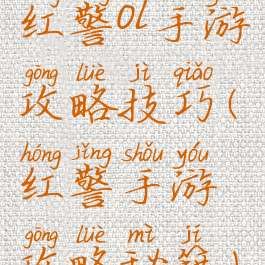 红警ol手游
gōng lüè jì qiǎo
攻略技巧(
hóng jǐng shǒu yóu
红警手游
gōng lüè mì jí
攻略秘籍)